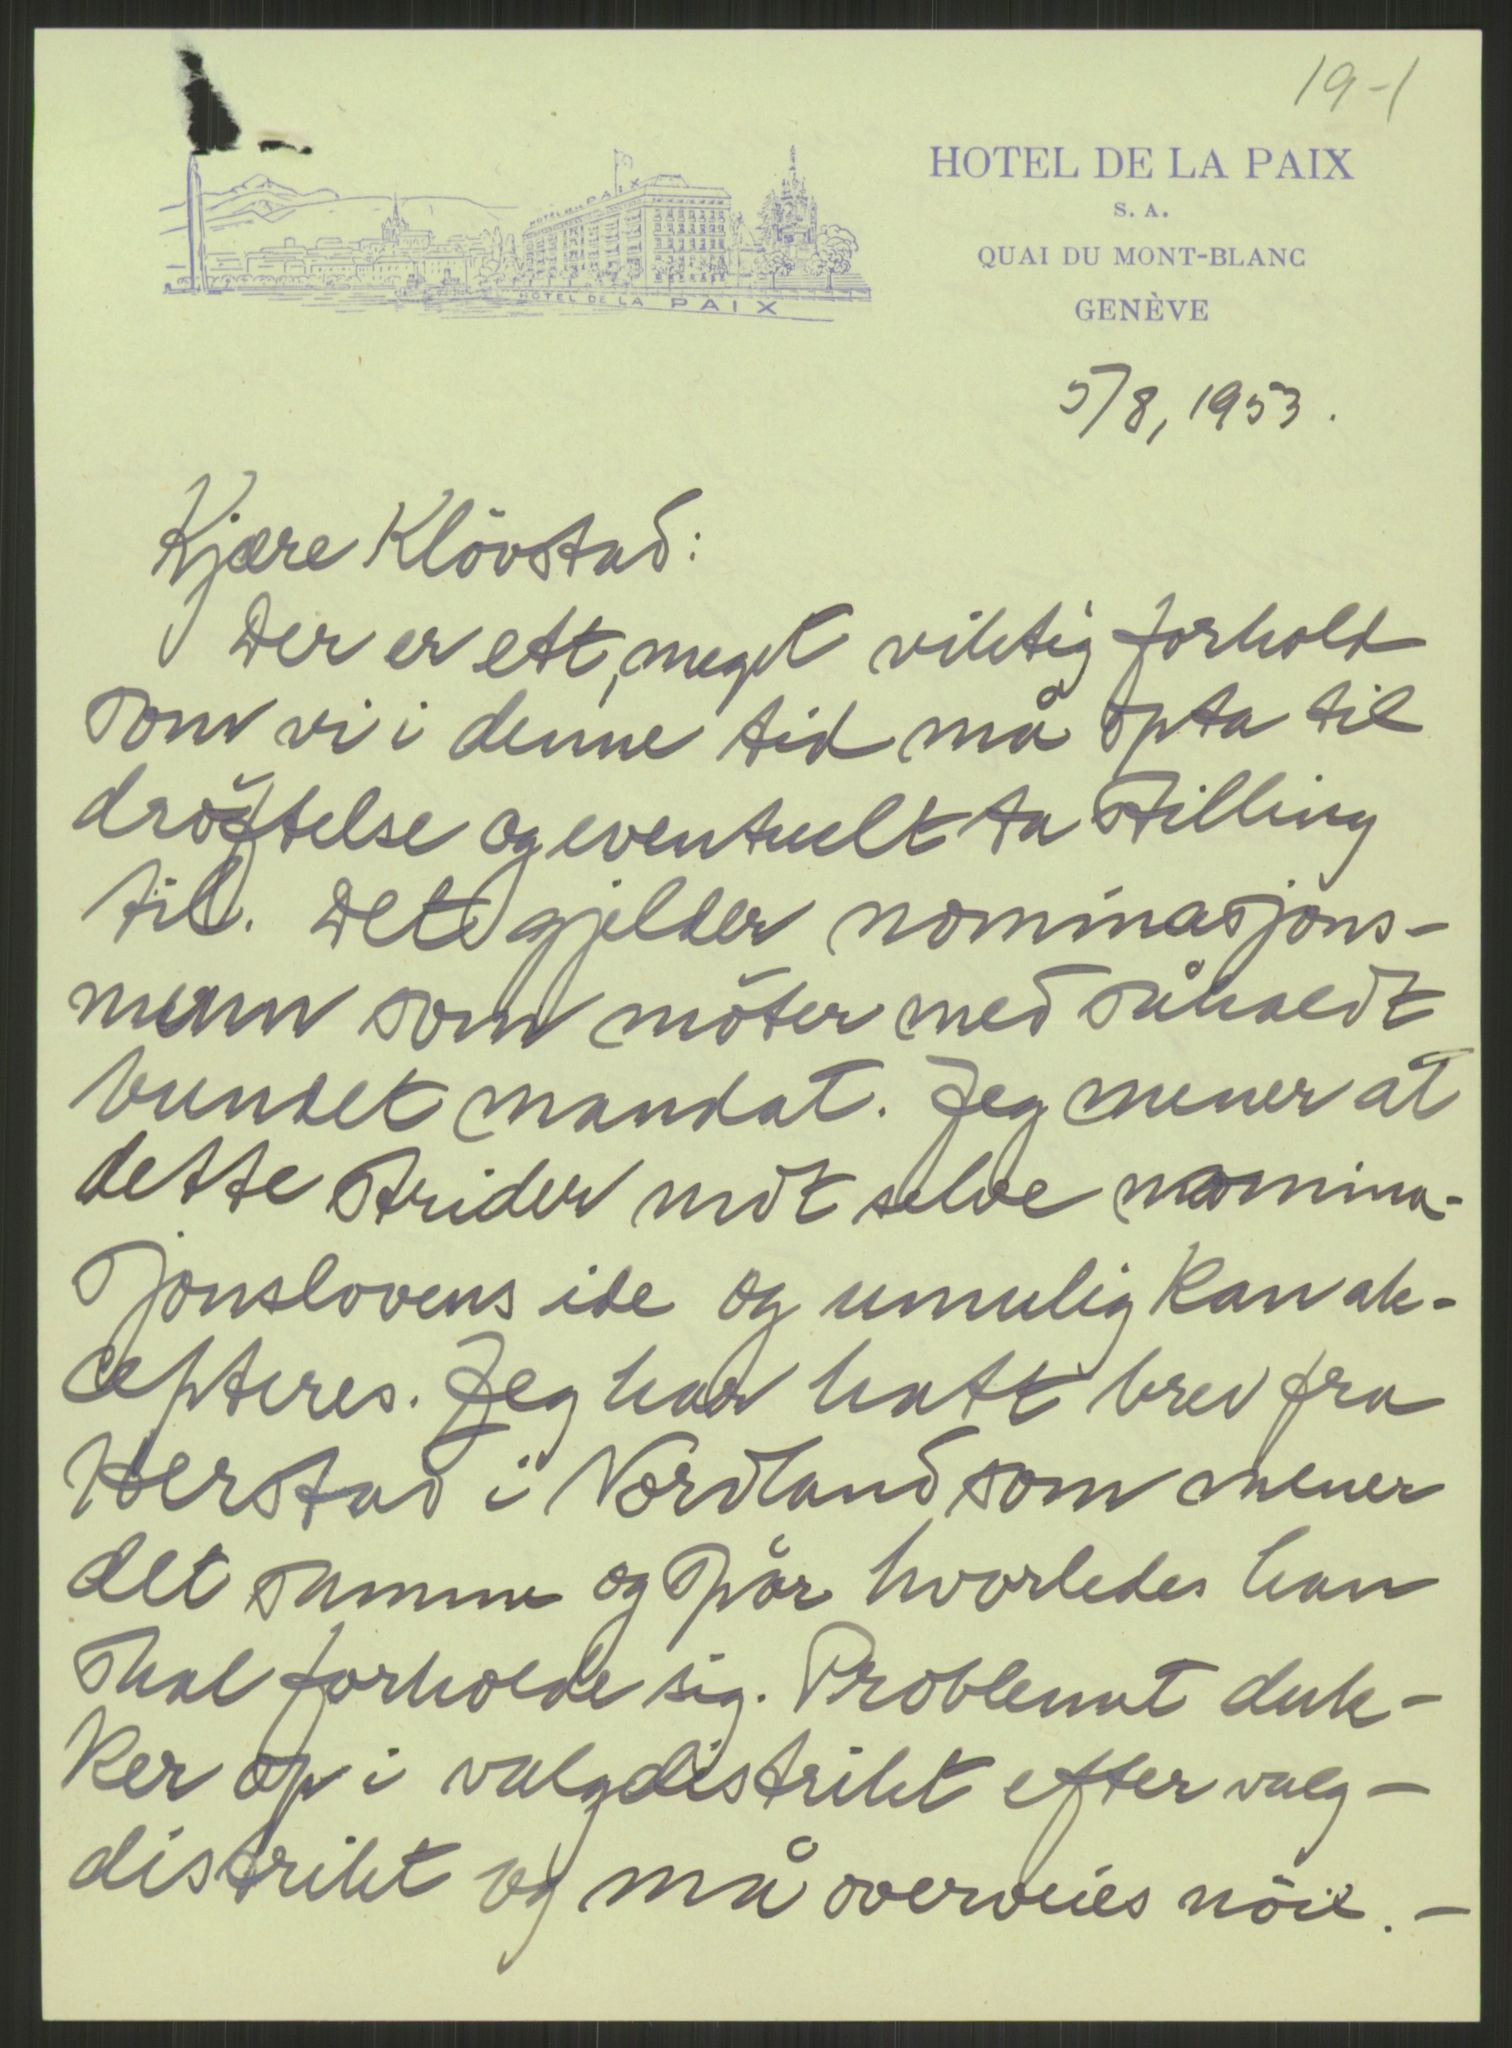 19-1
HOTEL DE LA PAIX
S. A.
QUAI DU MONT-BLANC
GENÈVE
HOTEL DE LA PAIX
HOTEL DE LA PAIX
5/8, 1953.
Kjære Klövstad:
Der er ett, meget viktig forhold
som vi i denne tid må opta til
dröftelse og eventuelt ta stilling
til. Det gjelder nominasjons-
menn som möter med såkaldt
bundet mandat. Jeg mener at
dette strider mot selve nomina-
sjonslovens ide og umulig kan ak-
cepteres. Jeg har hatt brev fra
Herstad i Nordland som mener
det samme og spår hvorledes han
skal forholde sig. Problemet duk-
ker op i valgdistrikt efter valg-
distrikt og må overveies nöie. -